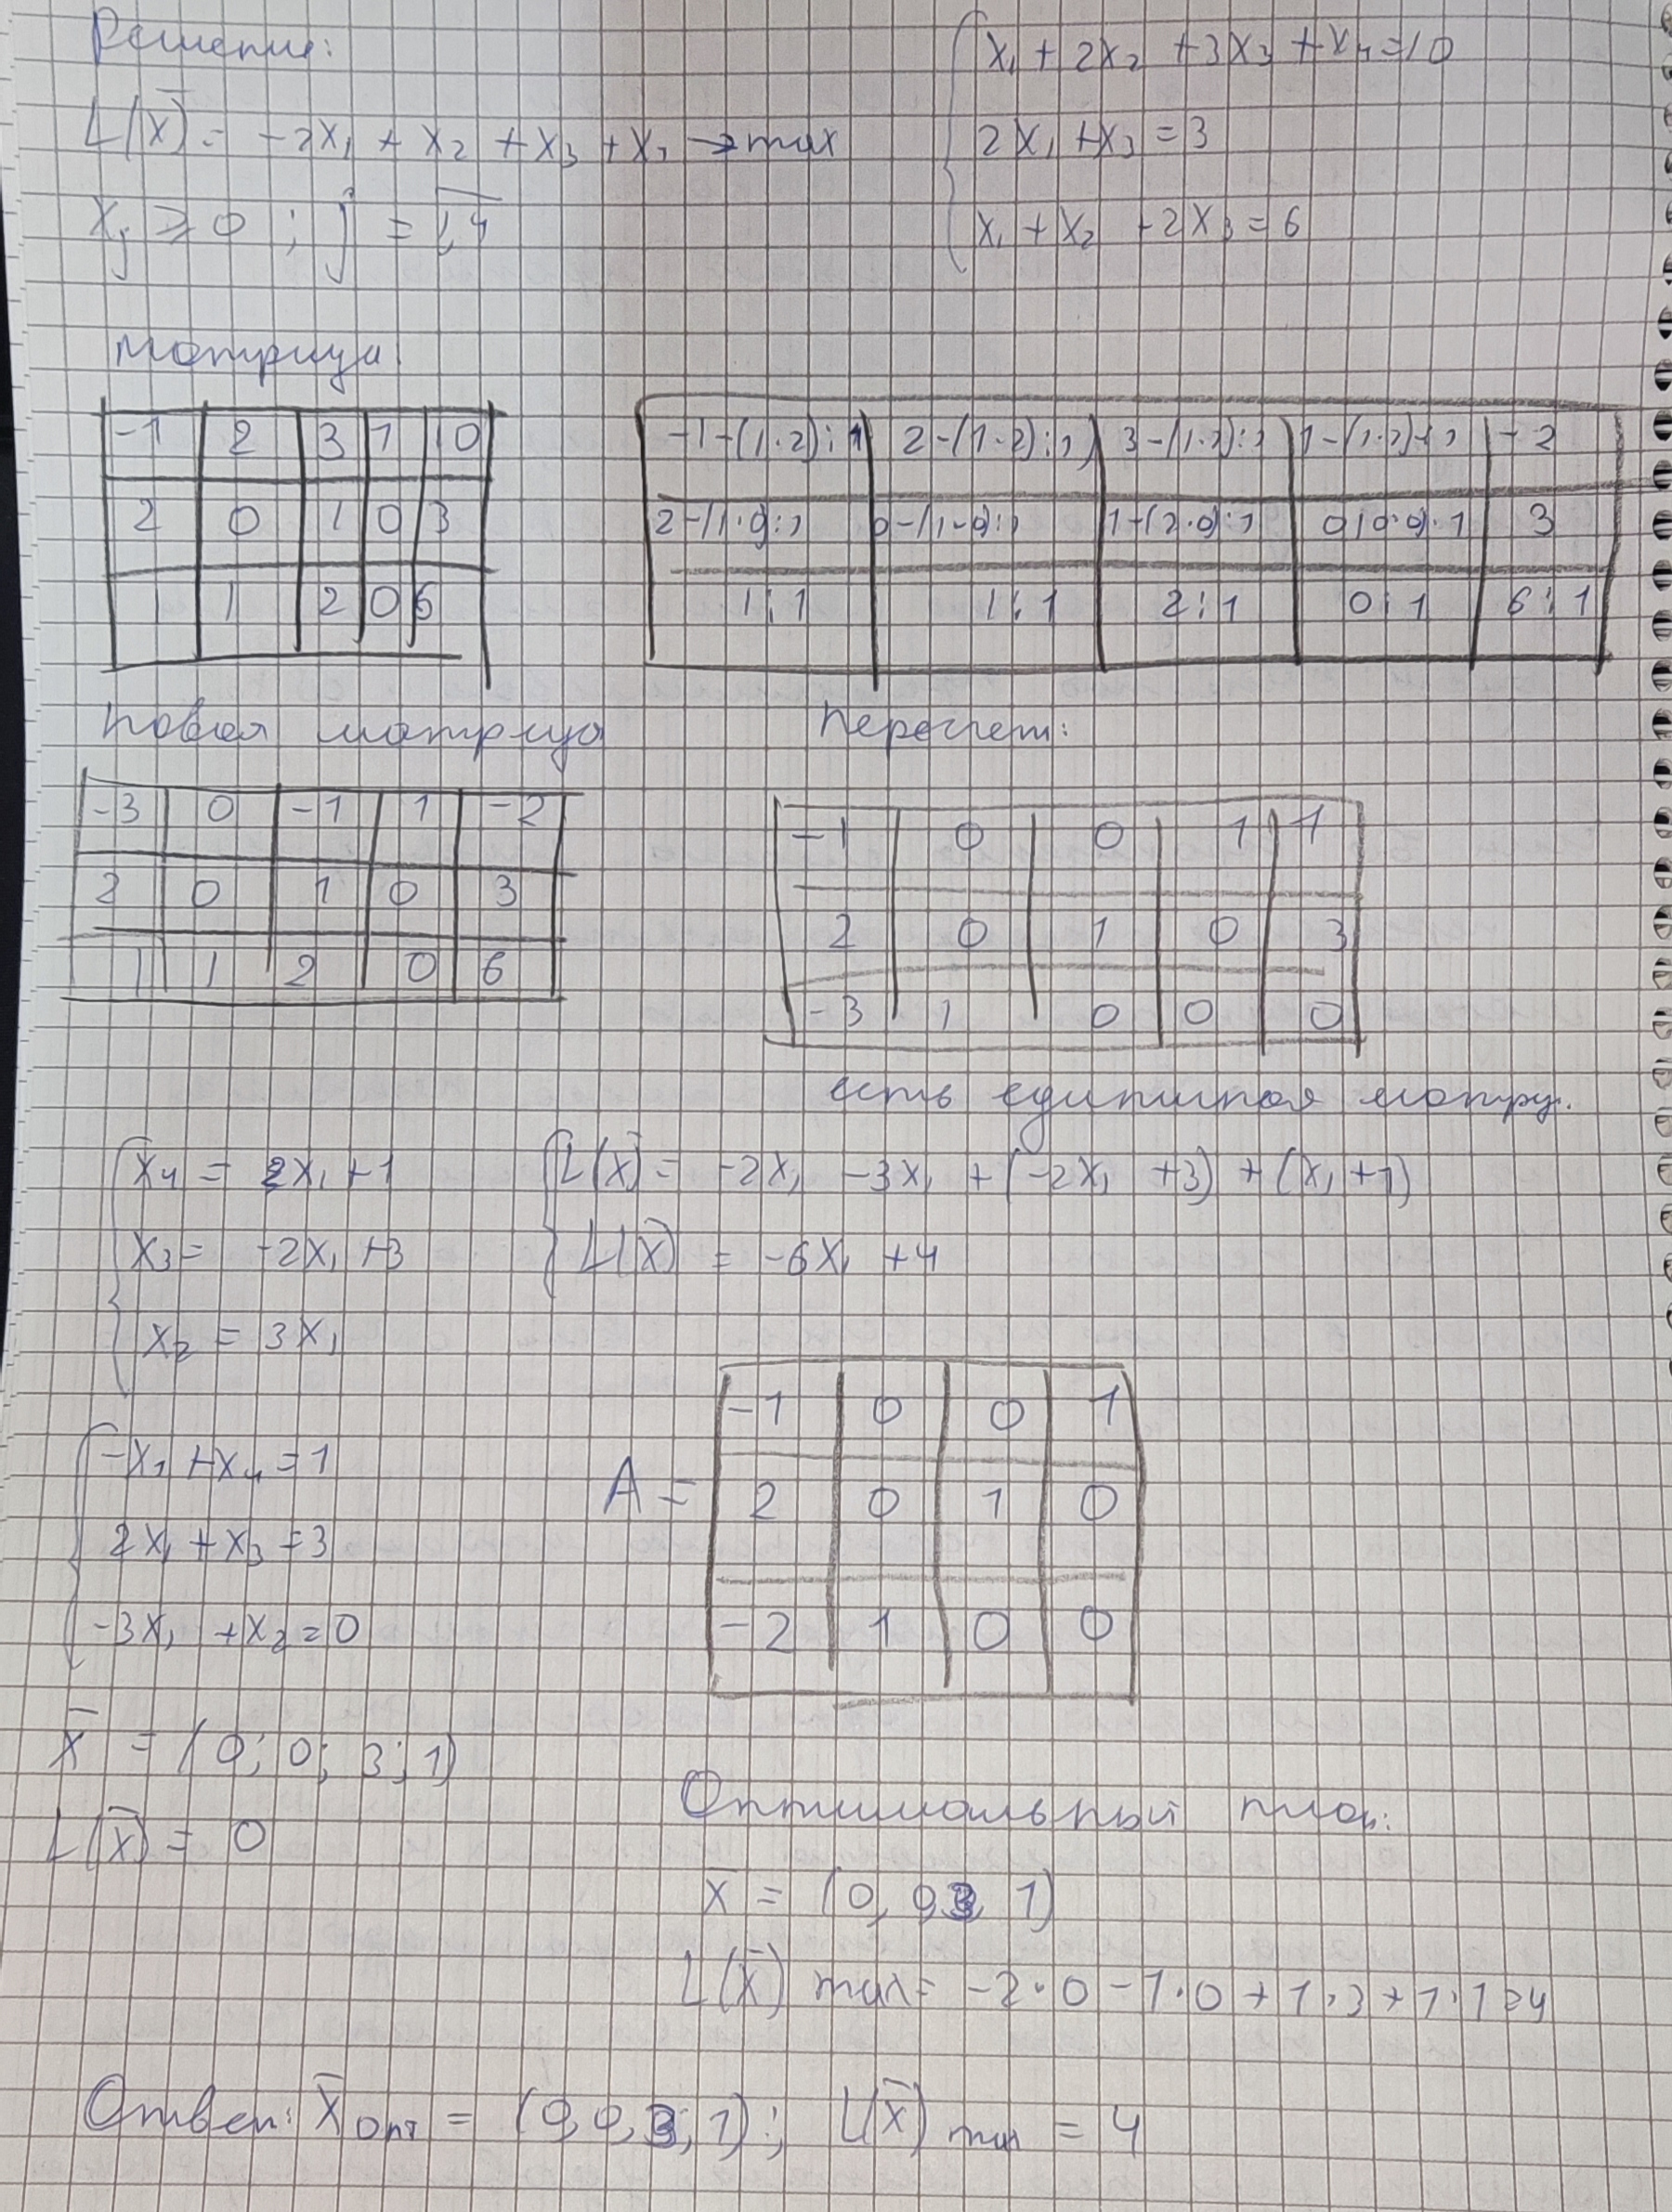 Решение:
L(x̄) = -2x₁ + x₂ + x₃ + x₁ → max
xⱼ ≥ 0 ; j = 1,4
x₁ + 2x₂ + 3x₃ + x₄ = 10
2x₁ + x₃ = 3
x₁ + x₂ + 2x₃ = 6
матрица
-1 2 3 1 10
2 0 1 0 3
1 1 2 0 6
-1-(1·2):1 2-(1·2):1 3-(1·2):1 1-(1·2):1 -2
2-(1·0):1 0-(1·0):1 1-(2·0):1 0(0·0)·1 3
1:1 1:1 2:1 0:1 6:1
Новая матрица
-3 0 -1 1 -2
2 0 1 0 3
1 1 2 0 6
Пересчет:
-1 0 0 1 1
2 0 1 0 3
-3 1 0 0 0
есть единичная матру.
x₄ = 2x₁ + 1
x₃ = -2x₁ + 3
x₂ = 3x₁
L(x̄) = -2x₁ - 3x₁ + (-2x₁ + 3) + (x₁ + 1)
L(x̄) = -6x₁ + 4
-x₁ + x₄ = 1
2x₁ + x₃ = 3
-3x₁ + x₂ = 0
A =
-1 0 0 1
2 0 1 0
-2 1 0 0
x̄ = (0; 0; 3; 1)
L(x̄) = 0
Оптимальный план:
x̄ = (0, 0, 3, 1)
L(x̄) max = -2·0 - 1·0 + 1·3 + 1·1 = 4
Ответ: x̄ опт = (0, 0, 3, 1); L(x̄) max = 4